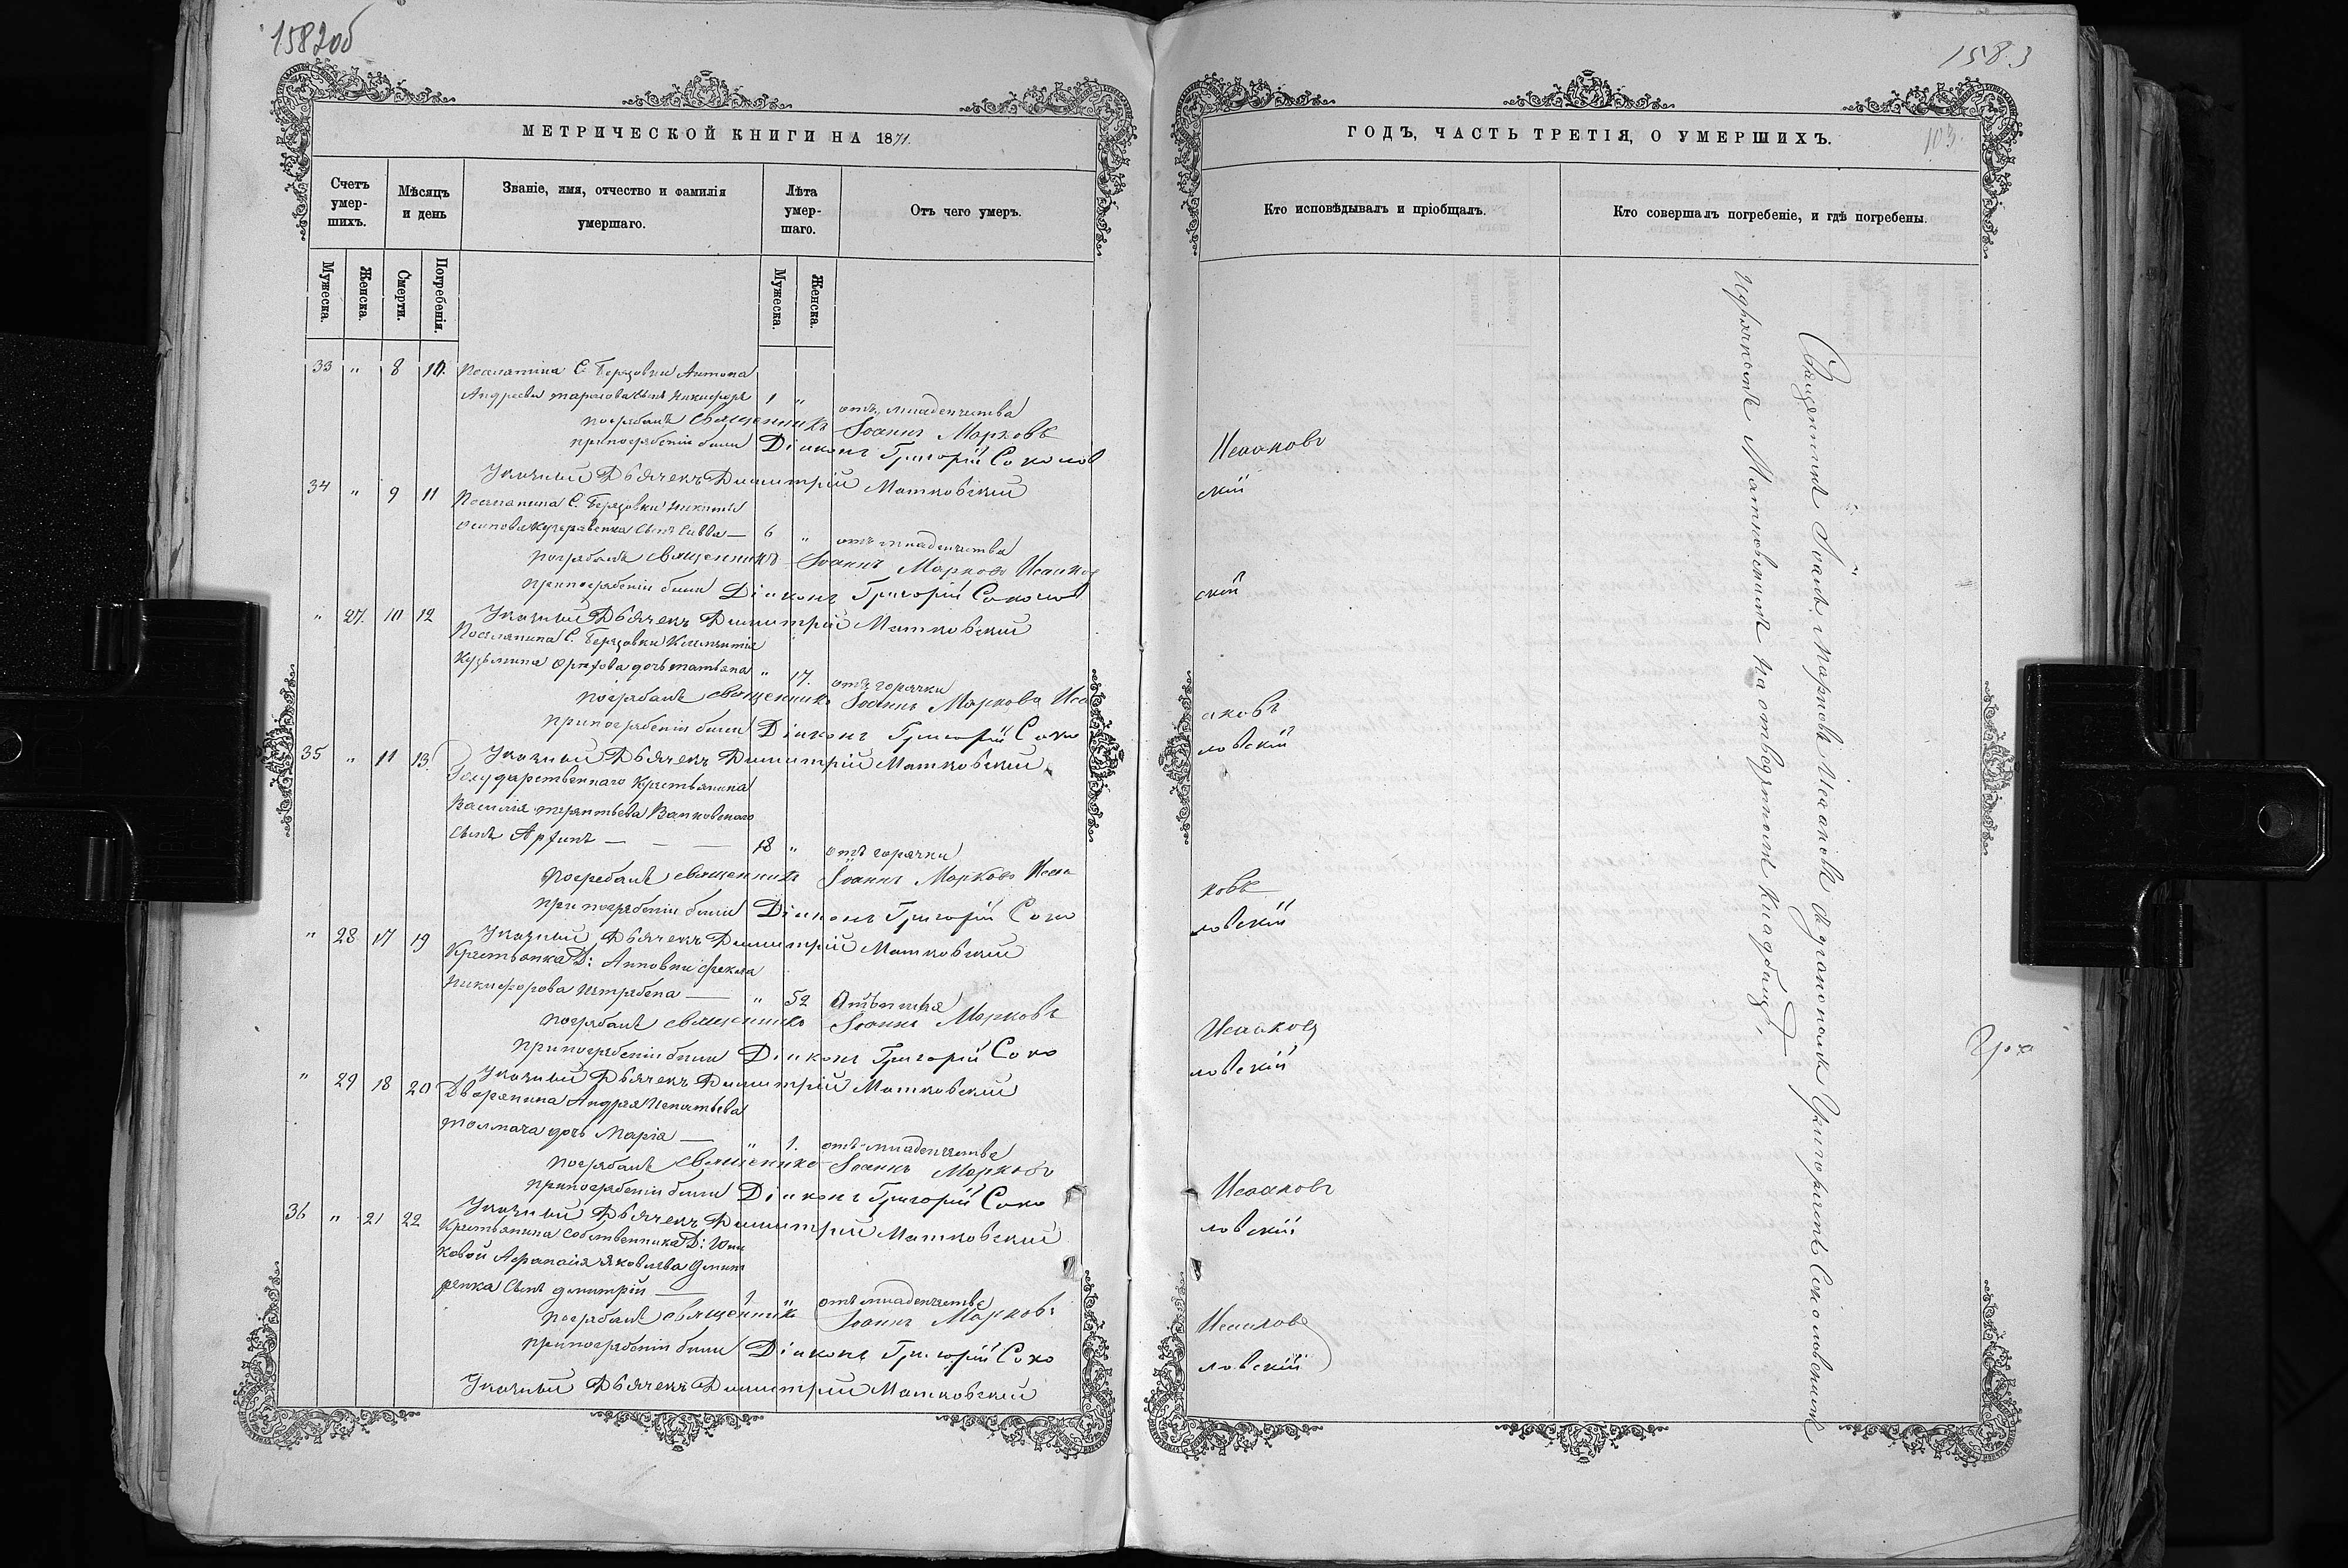 1582об
МЕТРИЧЕСКОЙ КНИГИ НА 1871.
Счетъ умер-шихъ.
Мѣсяцъ и день
Званіе, имя, отчество и фамилія умершаго.
Лѣта умер-шаго.
Отъ чего умеръ.
Мужеска.
Женска.
Смерти.
Погребенія.
Мужеска.
Женска.
33 " 8 10. Поселянина С. Березовки Антона
Андреева сынъ Никифоръ 1 " отъ младенчества
погребалъ священникъ Іоаннъ Марковъ
при погребеніи были Діаконъ Григорій Соколов
Указный Дьячекъ Димитрій Матковский
34 " 9 11 Поселянина С. Березовки Никиты
Осипова сынъ Савва — 6 " отъ младенчества
погребалъ священникъ Іоаннъ Марковъ Исаков
при погребеніи были Діаконъ Григорій Соколов
Указный Дьячекъ Димитрій Матковский
" 27. 10 12 Поселянина С. Березовки Климентія
Кузьмина дочь татьяна " 17. отъ горячки
погребалъ священникъ Іоаннъ Маркова Иса
при погребеніи были Діаконъ Григорій Соко
Указный Дьячекъ Димитрій Матковский
35 " 11 13. Государственнаго Крестьянина
Василія терентьева
сынъ — — — 18 " отъ горячки
Погребалъ священникъ Іоаннъ Марковъ Иса
при погребеніи были Діаконъ Григорій Соко
Указный Дьячекъ Димитрій Матковский
" 28 17 19 Крестьянка Д: Анновки фекла
никифорова — " 52
погребалъ священникъ Іоаннъ Марковъ
при погребеніи были Діаконъ Григорій Соко
Указный Дьячекъ Димитрій Матковский
" 29 18 20 Дворянина Андрея Игнатьева
толмача дочь Марія — " 1. отъ младенчества
погребалъ священникъ Іоаннъ Марковъ
при погребеніи были Діаконъ Григорій Соко
Указный Дьячекъ Димитрій Матковский
36 " 21 22 Крестьянина собственника Д: Юш
ковой Афанасія Яковлева Дмит
ренка сынъ дмитрій — 1 " отъ младенчества
погребалъ священникъ Іоаннъ Марковъ
при погребеніи были Діаконъ Григорій Соко
Указный Дьячекъ Димитрій Матковский
1583
103.
ГОДЪ, ЧАСТЬ ТРЕТІЯ, О УМЕРШИХЪ.
Кто исповѣдывалъ и пріобщалъ.
Кто совершалъ погребеніе, и гдѣ погребены.
Исааковъ
скій
скій
аковъ
ловскій
ковъ
ловскій
Исааковъ
ловскій
Исааковъ
ловскій
Исааковъ
ловскій
Священникъ Іоаннъ Марковъ Исааковъ съ діакономъ Григоріемъ Соколовскимъ
и дьячкомъ Матковскимъ на отведенномъ кладбищѣ